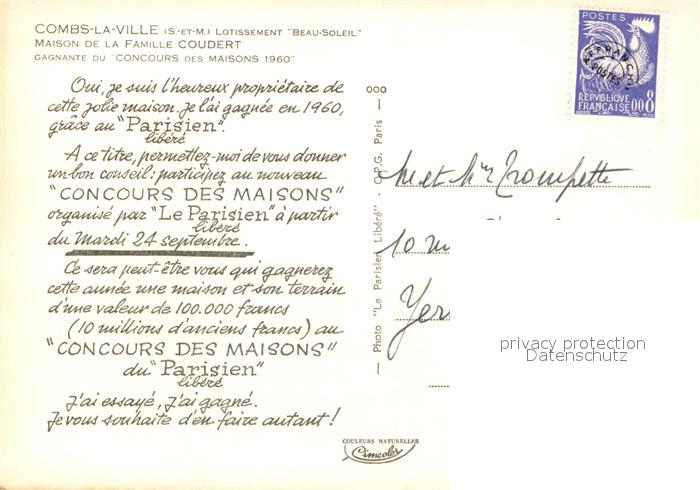 COMBS-LA-VILLE (S.-ET-M.) LOTISSEMENT "BEAU-SOLEIL"
MAISON DE LA FAMILLE COUDERT
GAGNANTE DU "CONCOURS DES MAISONS 1960"
Oui, je suis l'heureux propriétaire de
cette jolie maison. Je l'ai gagnée en 1960,
grâce au "Parisien".
libéré
A ce titre, permettez-moi de vous donner
un bon conseil: participez au nouveau
"CONCOURS DES MAISONS"
organisé par "Le Parisien" à partir
libéré
du Mardi 24 septembre.
Ce sera peut-être vous qui gagnerez
cette année une maison et son terrain
d'une valeur de 100.000 francs
(10 millions d'anciens francs) au
"CONCOURS DES MAISONS"
du "Parisien"
libéré
J'ai essayé, j'ai gagné.
Je vous souhaite d'en faire autant!
COULEURS NATURELLES
Cimcolor
— Photo "Le Parisien Libéré" - O.P.G. Paris —
POSTES
AFFRANCHts
POSTES
REPVBLIQVE
FRANÇAISE 008
M et Mme Trompette
10
Yer
privacy protection
Datenschutz